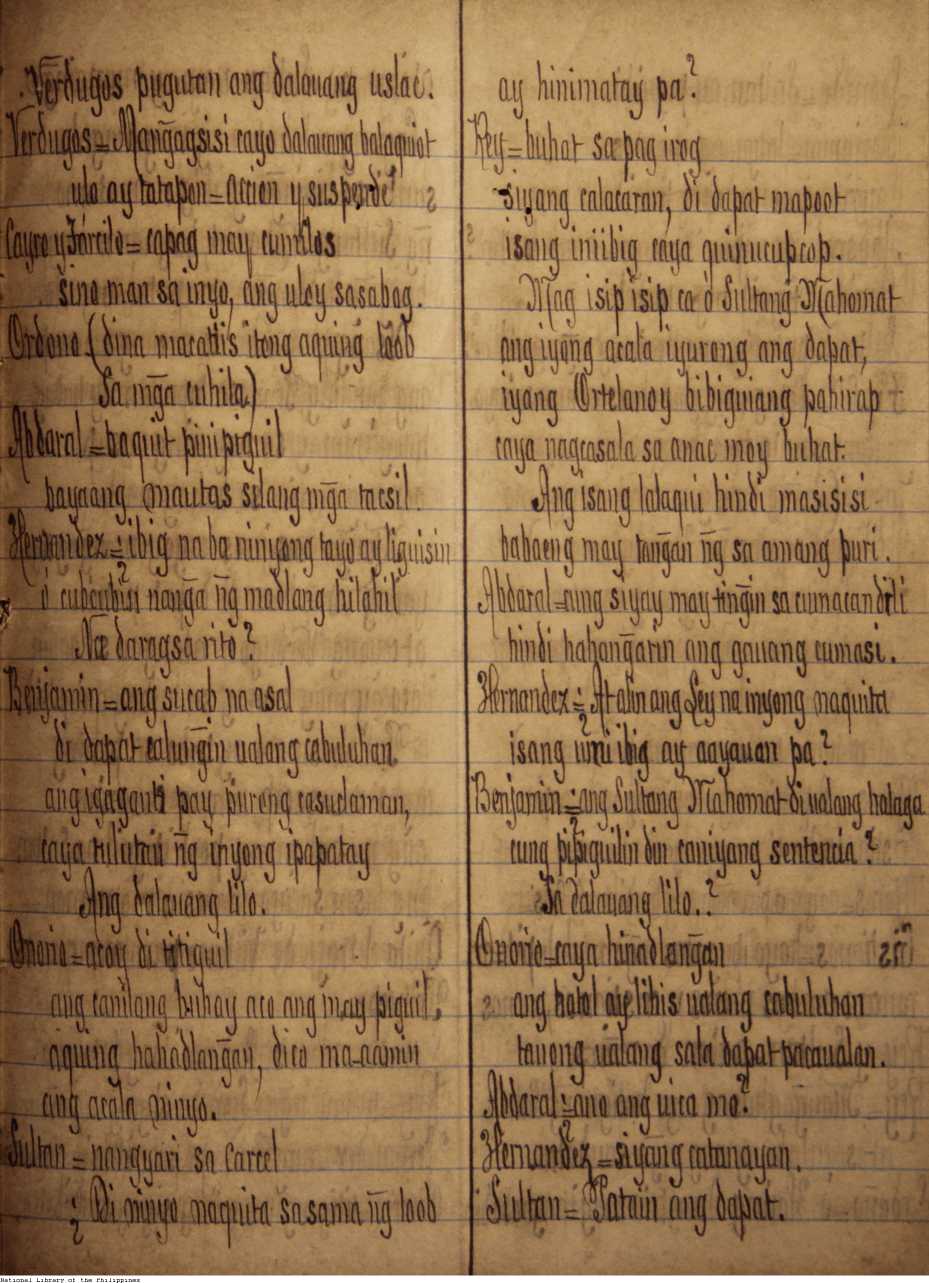 Verdugos pugutan ang dalauang uslac.
Verdugos = Mangagsisi cayo dalauang balaquiot
ulo ay tatapon = accion y suspende
Cayro y Tarcilo = capag may cumilos
sino man sa inyo, ang uloy sasabog.
Ordono ( dina macattis itong aquing loob
Sa mga cuhila )
Abdaral = baquit pinipiguil
bayaang mautas silang mga tacsil.
Hernandez = ¿ ibig na ba ninyong tayo ay liguisin
ó cubcubin nanga ng madlang hilahil
Na daragsa rito?
Benjamin = ang sucab na asal
di dapat calungin ualang cabuluhan
ang igaganti pay purong casuclaman,
caya tulutan ng inyong ipapatay
Ang dalauang lilo.
Onorio = acoy di titiguil
ang canilang buhay aco ang may piguil,
aquing hahadlangan, dico ma-aamin
ang acala ninyo.
Sultan = nangyari sa Carcel
¿ Di ninyo naquita sa sama ng loob
ay hinimatay pa?
Rey = buhat sa pag irog
siyang calacaran, di dapat mapoot
isang iniibig caya quinucupcop.
Mag isip isip ca ó Sultang Mahomat
ang iyong acala iyurong ang dapat,
iyang Ortelanoy bibiguiang pahirap
caya nagcasala sa anac moy buhat.
Ang isang lalaqui hindi masisisi
babaeng may tangan ng sa amang puri.
Abdaral = ang siyay may tingin sa cumacandili
hindi hahangarin ang gauang cumasi.
Hernandez = ¿ At alin ang Ley na inyong naquita
isang umiibig ay aayauan pa?
Benjamin = ang Sultang Mahomat di ualang halaga
cung pipiguilin din caniyang sentencia?
Sa dalauang lilo..?
Onorio = caya hinadlangan
ang hatol ay lihis ualang cabuluhan
tauong ualang sala dapat pacaualan.
Abdaral = ¿ ano ang uica mo?
Hernandez = siyang catunayan.
Sultan = Patain ang dapat.
National Library of the Philippines